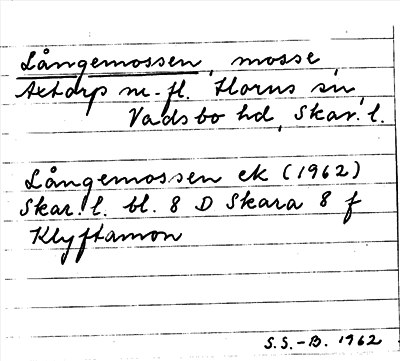 Långemossen, mosse,
Axtorp m.fl. Horns sn,
Vadsbo hd, Skar. l.
Långemossen ek (1962)
Skar. l. bl. 8 D Skara 8 f
Klyftamon
S.S.-B. 1962